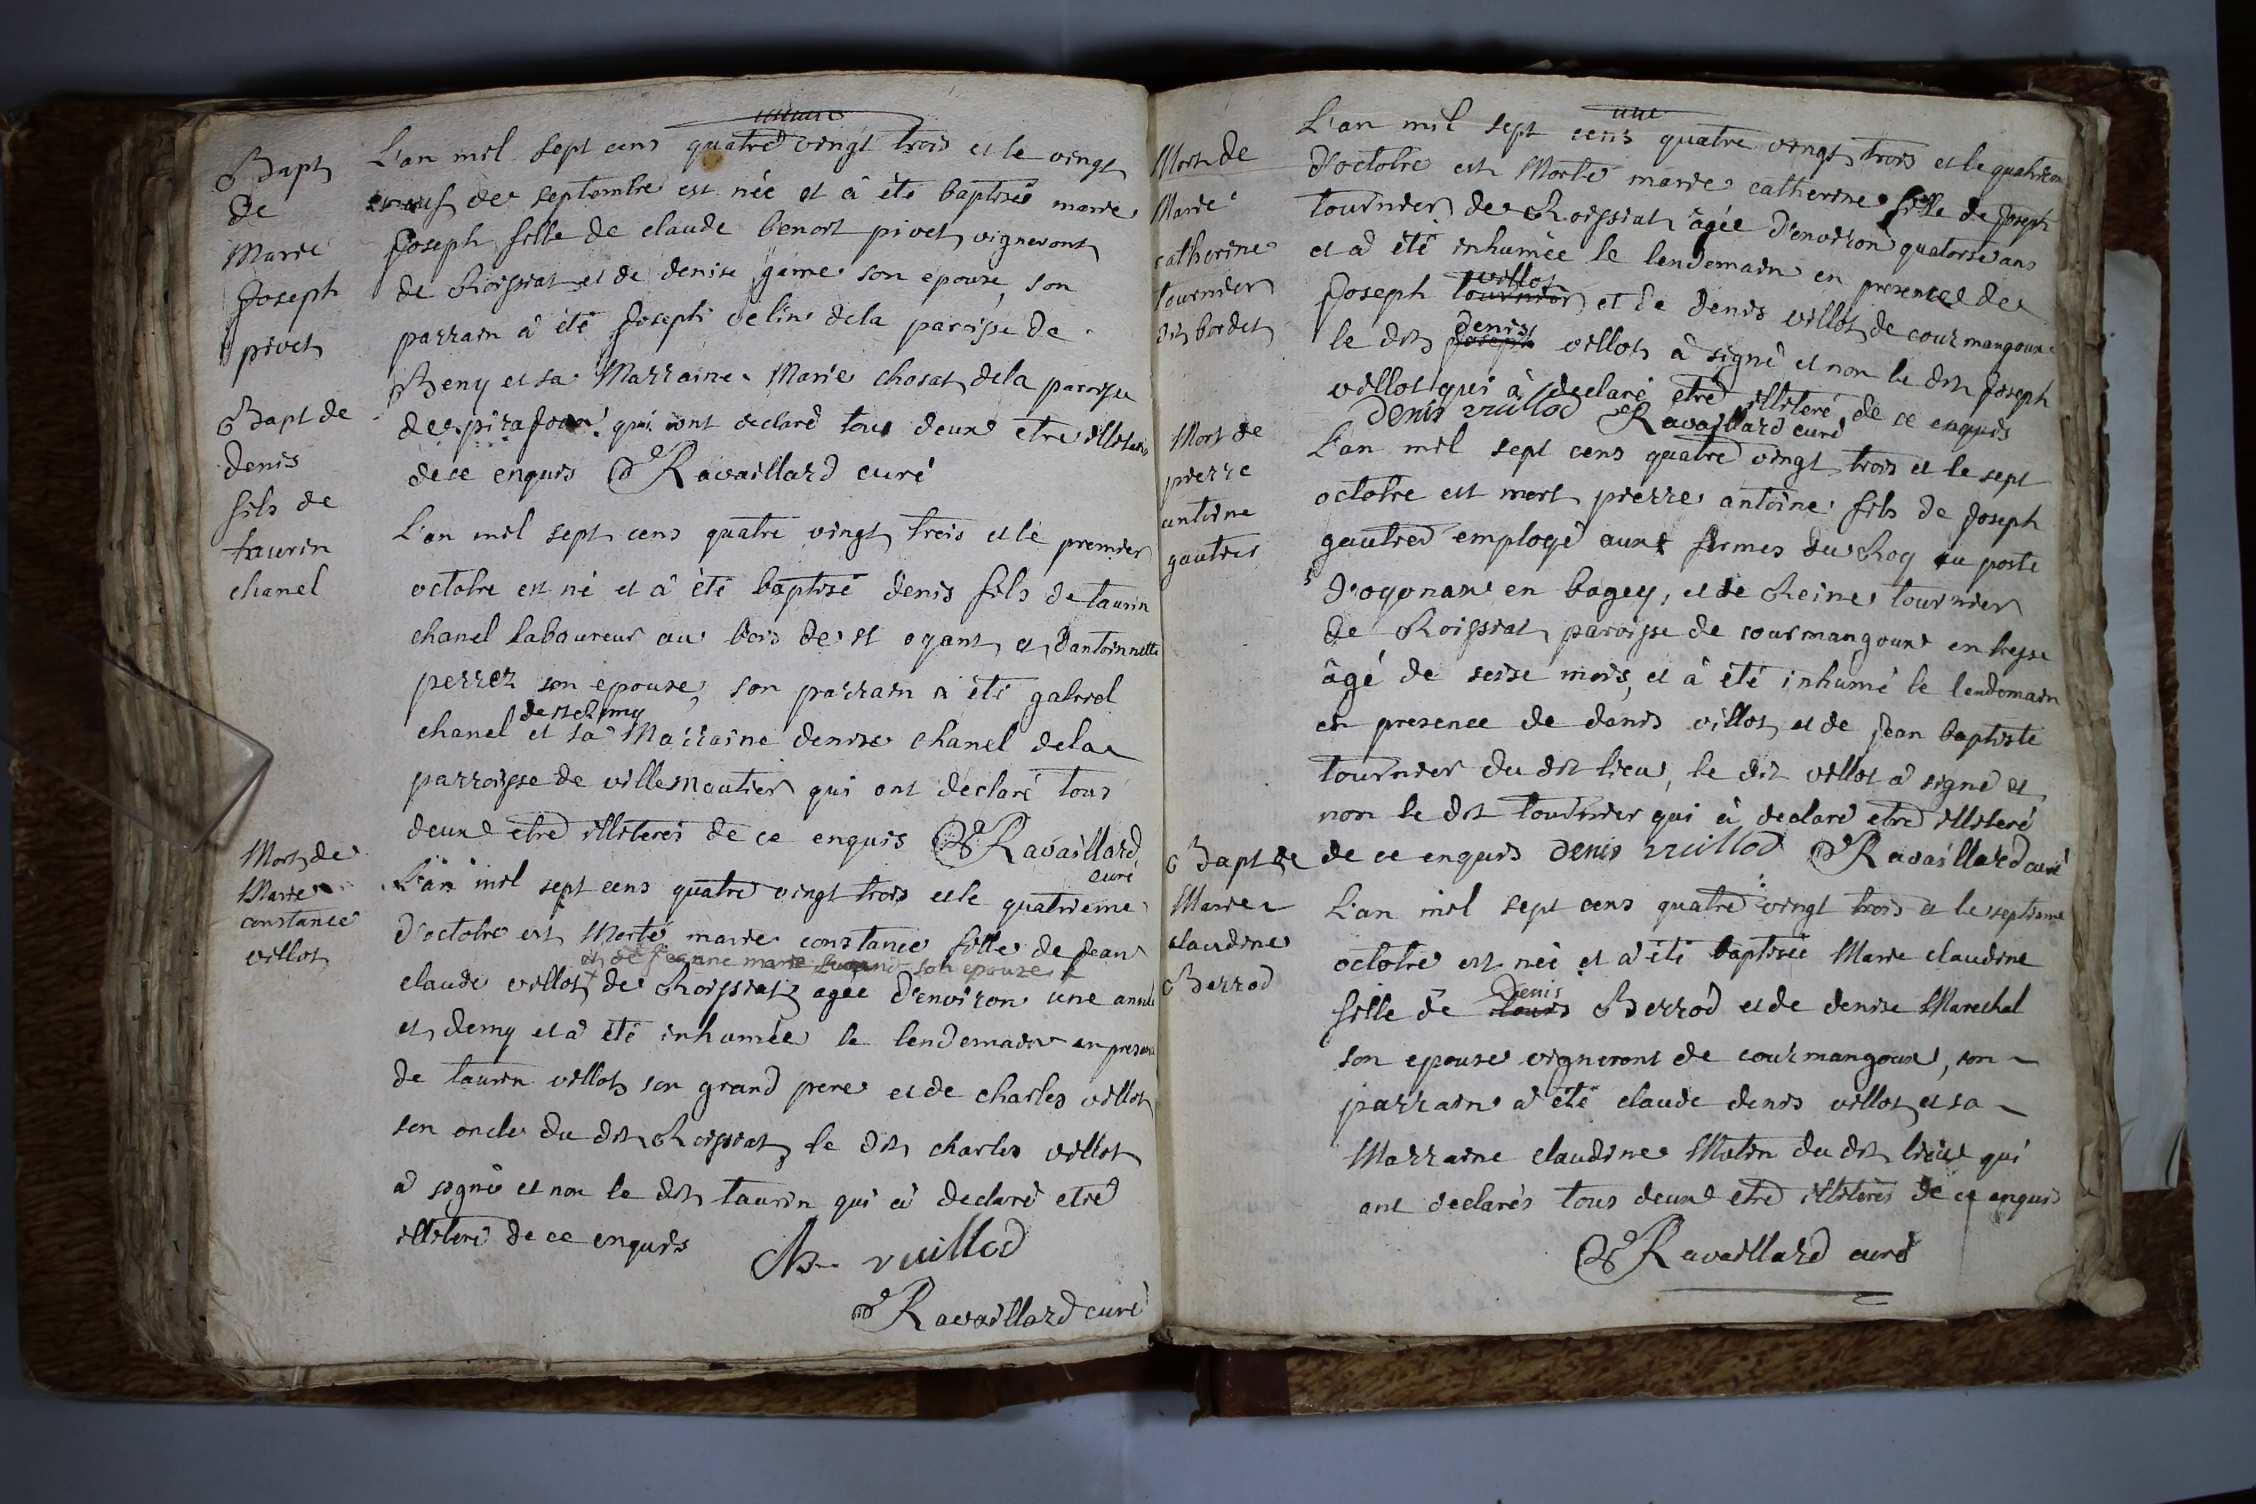 Bapt
de
Marie
Joseph
pivet
L'an mil sept cens quatre vingt trois et le vingt
neuf de septembre est née et à été baptisée marie
Joseph fille de claude benoit pivet vigneront
de Roissiat et de denise game son epouse, son
parrain à été Joseph velin dela paroisse de
Beny et sa Marraine Marie chosat dela paroisse
de pirajoux qui ont declaré tous deux etre illiteres
de ce enquis Ravaillard curé
Bapt de
denis
fils de
taurin
chanel
L'an mil sept cens quatre vingt trois et le premier
octobre est né et à été baptisé denis fils de taurin
chanel laboureur au bois de st oyant et dantoinnette
perret son epouse, son parrain a été gabriel
chanel de st remy et sa Marraine denise chanel dela
parroisse de villemoutier qui ont declaré tous
deux etre illiterés de ce enquis Ravaillard
curé
Mort de
Marie
constance
villot
L'an mil sept cens quatre vingt trois et le quatrieme
d'octobre est Morte marie constance fille de Jean
et de Jeanne marie son epouse
claude villot de Roissiat agée d'environ une année
et demy et à été inhumée le lendemain en presence
de taurin villot son grand pere et de charles villot
son oncle du dit Roissiat, le dit charles villot
à signé et non le dit taurin qui à declaré etre
illiteré de ce enquis Ch vuillod
Ravaillard curé
Mort de
Marie
catherine
tournier
dit bordet
L'an mil sept cens quatre vingt trois et le quatrieme
d'octobre est Morte marie catherine fille de Joseph
tournier de Roissiat agée d'environ quatorse ans
et à été inhumée le lendemain en presence de
Joseph tournier villot et de Denis villot de courmangoux
le dit Joseph denis villot à signé et non le dit Joseph
villot qui à declaré etre illiteré de ce enquis
Denis vuillod Ravaillard curé
Mort de
pierre
antoine
gautier
L'an mil sept cens quatre vingt trois et le sept
octobre est mort pierre antoine fils de Joseph
gautier employé aux fermes du Roy au poste
d'oyonax en bugey, et de Reine tournier
de Roissiat paroisse de courmangoux en bresse
âgé de seise mois, et à été inhumé le lendemain
en presence de denis villot et de Jean baptiste
tournier du dit lieu, le dit villot à signé et
non le dit tournier qui à declaré etre illiteré
de ce enquis Denis vuillod Ravaillard curé
Bapt de
Marie
claudine
Berrod
L'an mil sept cens quatre vingt trois et le septieme
octobre est née et à été baptisée Marie claudine
fille de Louis Denis Berrod et de denise Marechal
son epouse vigneront de courmangoux, son
parrain à été claude denis villot et sa
Marraine claudine Matin du dit lieu qui
ont declarés tous deux etre illiterés de ce enquis
Ravaillard curé